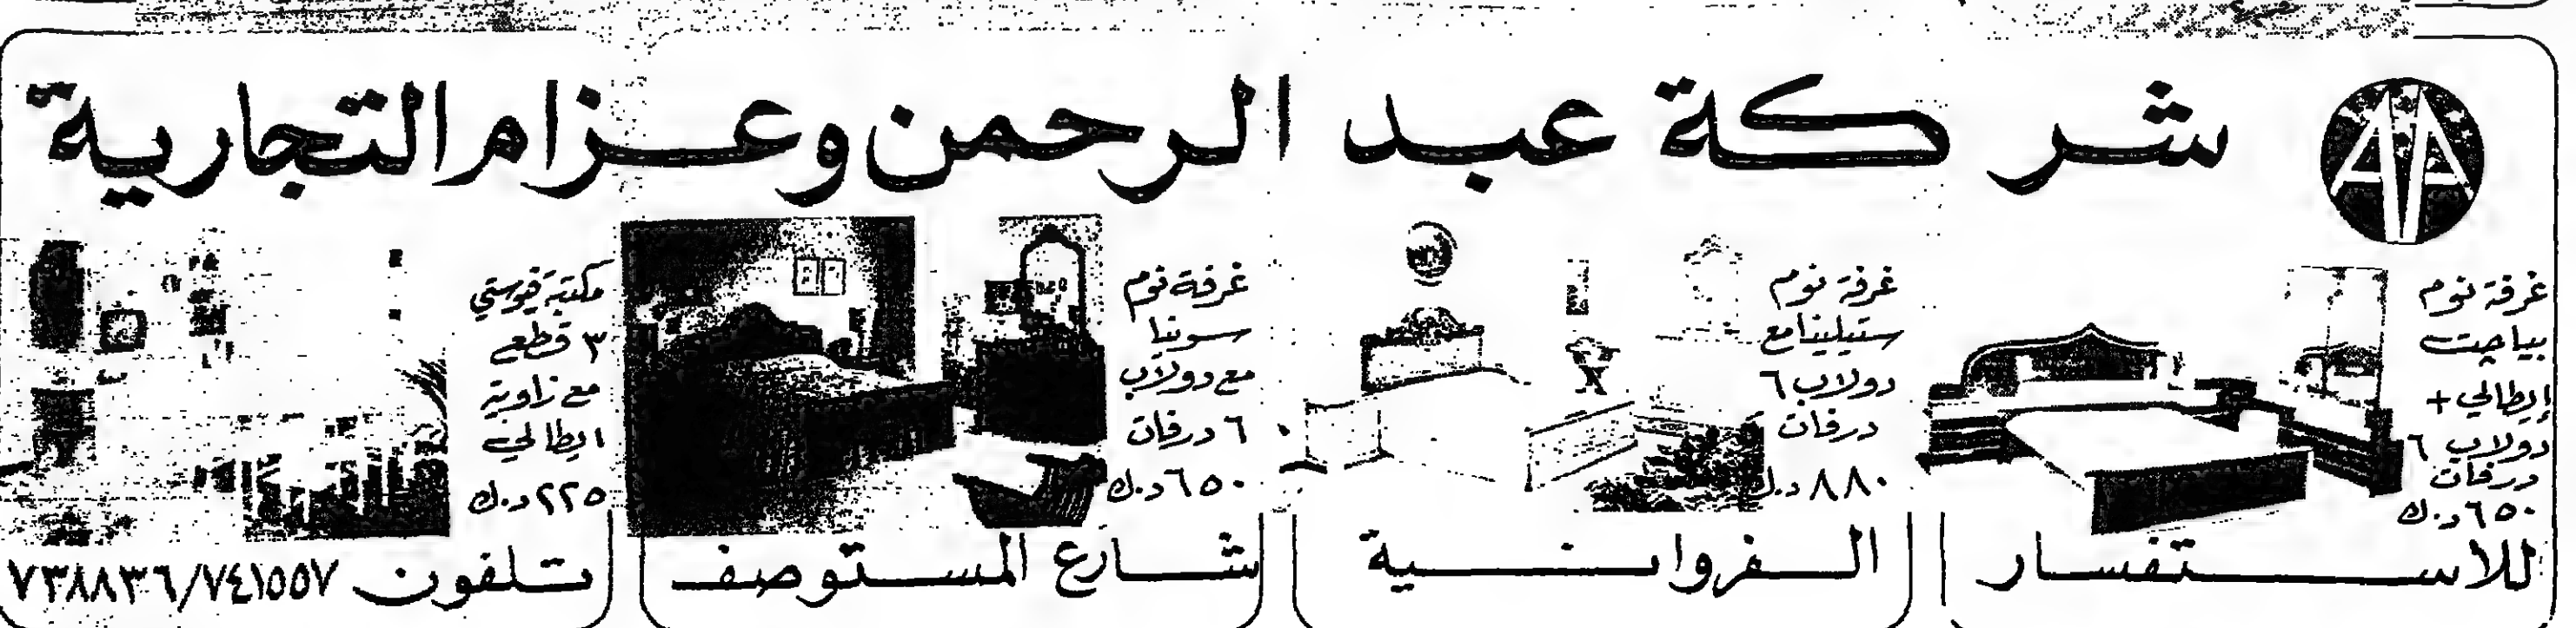 شركة عبد الرحمن وعزام التجارية
AA
غرفة نوم
بياجت
إيطالي +
دولاب ٦
درفات
٦٥٠ د.ك
غرفة نوم
ستيلينا مع
دولاب ٦
درفات
٨٨٠ د.ك
غرفة نوم
سونيا
مع دولاب
٦ درفات
٦٥٠ د.ك
مكتبة فيوستي
٣ قطع
مع زاوية
ايطالي
٢٢٥ د.ك
للاستفسار
الفروانية
شارع المستوصف
تلفون ٧٣٨٨٣٦/٧٤١٥٥٧